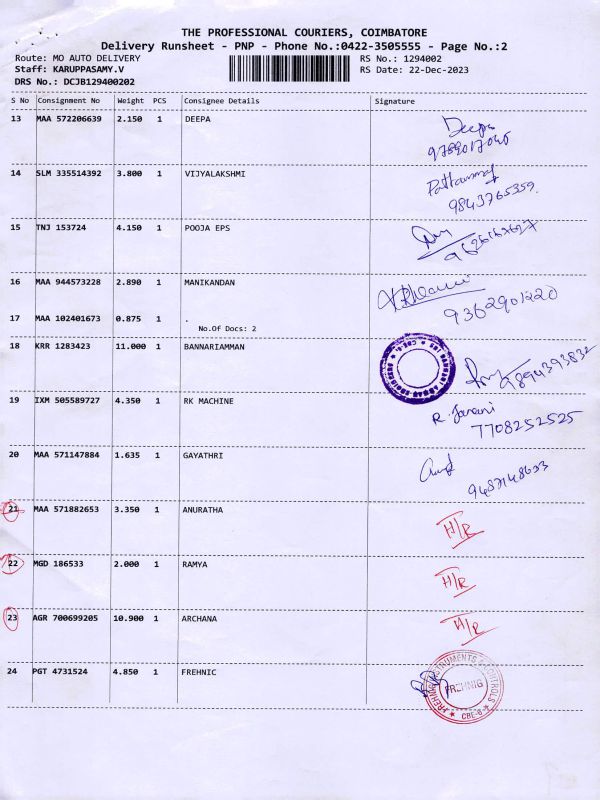 THE PROFESSIONAL COURIERS, COIMBATORE
Delivery Runsheet - PNP - Phone No.:0422-3505555 - Page No.:2
Route: MO AUTO DELIVERY RS No.: 1294002
Staff: KARUPPASAMY.V RS Date: 22-Dec-2023
DRS No.: DCJB129400202
S No Consignment No Weight PCS Consignee Details Signature
13 MAA 572206639 2.150 1 DEEPA Deepa
14 SLM 335514392 3.800 1 VIJYALAKSHMI
9843765359.
15 TNJ 153724 4.150 1 POOJA EPS
16 MAA 944573228 2.890 1 MANIKANDAN
9362901220
17 MAA 102401673 0.875 1 .
No.Of Docs: 2
18 KRR 1283423 11.000 1 BANNARIAMMAN
9894393832
19 IXM 505589727 4.350 1 RK MACHINE R. Janani
7708252525
20 MAA 571147884 1.635 1 GAYATHRI
21 MAA 571882653 3.350 1 ANURATHA H/R
22 MGD 186533 2.000 1 RAMYA H/R
23 AGR 700699205 10.900 1 ARCHANA H/R
24 PGT 4731524 4.850 1 FREHNIC
FREHNIG INSTRUMENTS & CONTROLS
FREHNIG
CBE-6